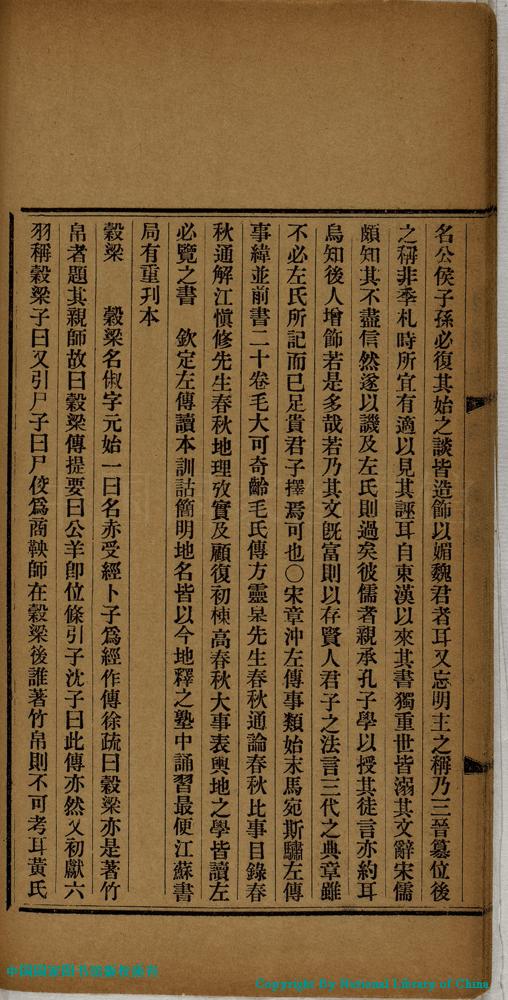 名公侯子孫必復其始之談皆造飾以媚魏君者耳又忘明主之稱乃三晉篡位後
之稱非季札時所宜有適以見其誣耳自東漢以來其書獨重世皆溺其文辭宋儒
頗知其不盡信然遂以譏及左氏則過矣彼儒者親承孔子學以授其徒言亦約耳
烏知後人增飾若是多哉若乃其文旣富則以存賢人君子之法言三代之典章雖
不必左氏所記而已足貴君子擇焉可也○宋章沖左傳事類始末馬宛斯驌左傳
事緯並前書二十卷毛大可奇齡毛氏傳方靈臯先生春秋通論春秋比事目錄春
秋通解江愼修先生春秋地理攷實及顧復初棟高春秋大事表輿地之學皆讀左
必覽之書 欽定左傳讀本訓詁簡明地名皆以今地釋之塾中誦習最便江蘇書
局有重刋本
穀梁 穀梁名俶字元始一曰名赤受經卜子爲經作傳徐疏曰穀梁亦是著竹
帛者題其親師故曰穀梁傳提要曰公羊卽位條引子沈子曰此傳亦然又初獻六
羽稱穀梁子曰又引尸子曰尸佼爲商鞅師在穀梁後誰著竹帛則不可考耳黃氏
中国国家图书馆版权所有
Copyright by National Library of China